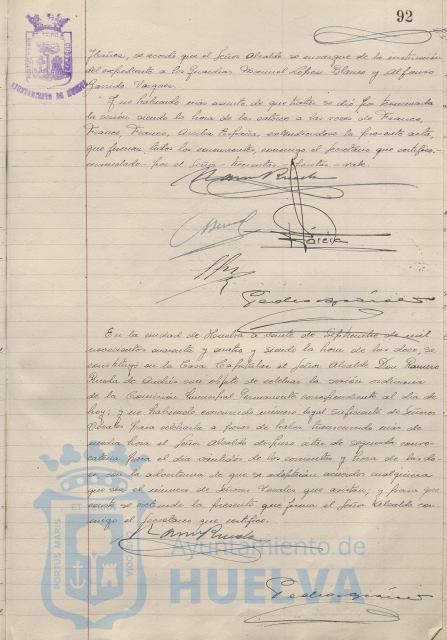 92
AYUNTAMIENTO DE HUELVA
Ibáñez, se acordó que el Señor Alcalde se encargue de la instrucción
del expediente a los Guardias Manuel López Blanco y Alfonso
Garrido Vazquez.
Y no habiendo más asunto de que tratar se dió por terminada
la sesión siendo la hora de las catorce a las voces de Franco,
Franco, Franco, Arriba España, extendiéndose la presente acta,
que firman todos los concurrentes, conmigo el Secretario que certifico.
enmendado - por el Señor - vale.
García
Pedro
En la ciudad de Huelva a veinte de Septiembre de mil
novecientos cuarenta y cuatro y siendo la hora de las doce, se
constituyó en la Casa Capitular el Señor Alcalde Don Ramiro
Rueda de Andrés con objeto de celebrar la sesión ordinaria
de la Comisión Municipal Permanente correspondiente al día de
hoy; y no habiendo concurrido número legal suficiente de Señores
Vocales para celebrarla a pesar de haber transcurrido más de
media hora el Señor Alcalde dispuso citar de segunda convo-
catoria para el día veintidos de los corrientes y hora de las do-
ce con la advertencia de que se adoptarían acuerdos cualquiera
que sea el número de Señores Vocales que asistan, y para que
conste se extiende la presente que firma el Señor Alcalde con-
migo el Secretario que certifico.
Ramiro Rueda
Pedro
PORTUS MARIS ET TERRAE CUSTODIA
Ayuntamiento de
HUELVA